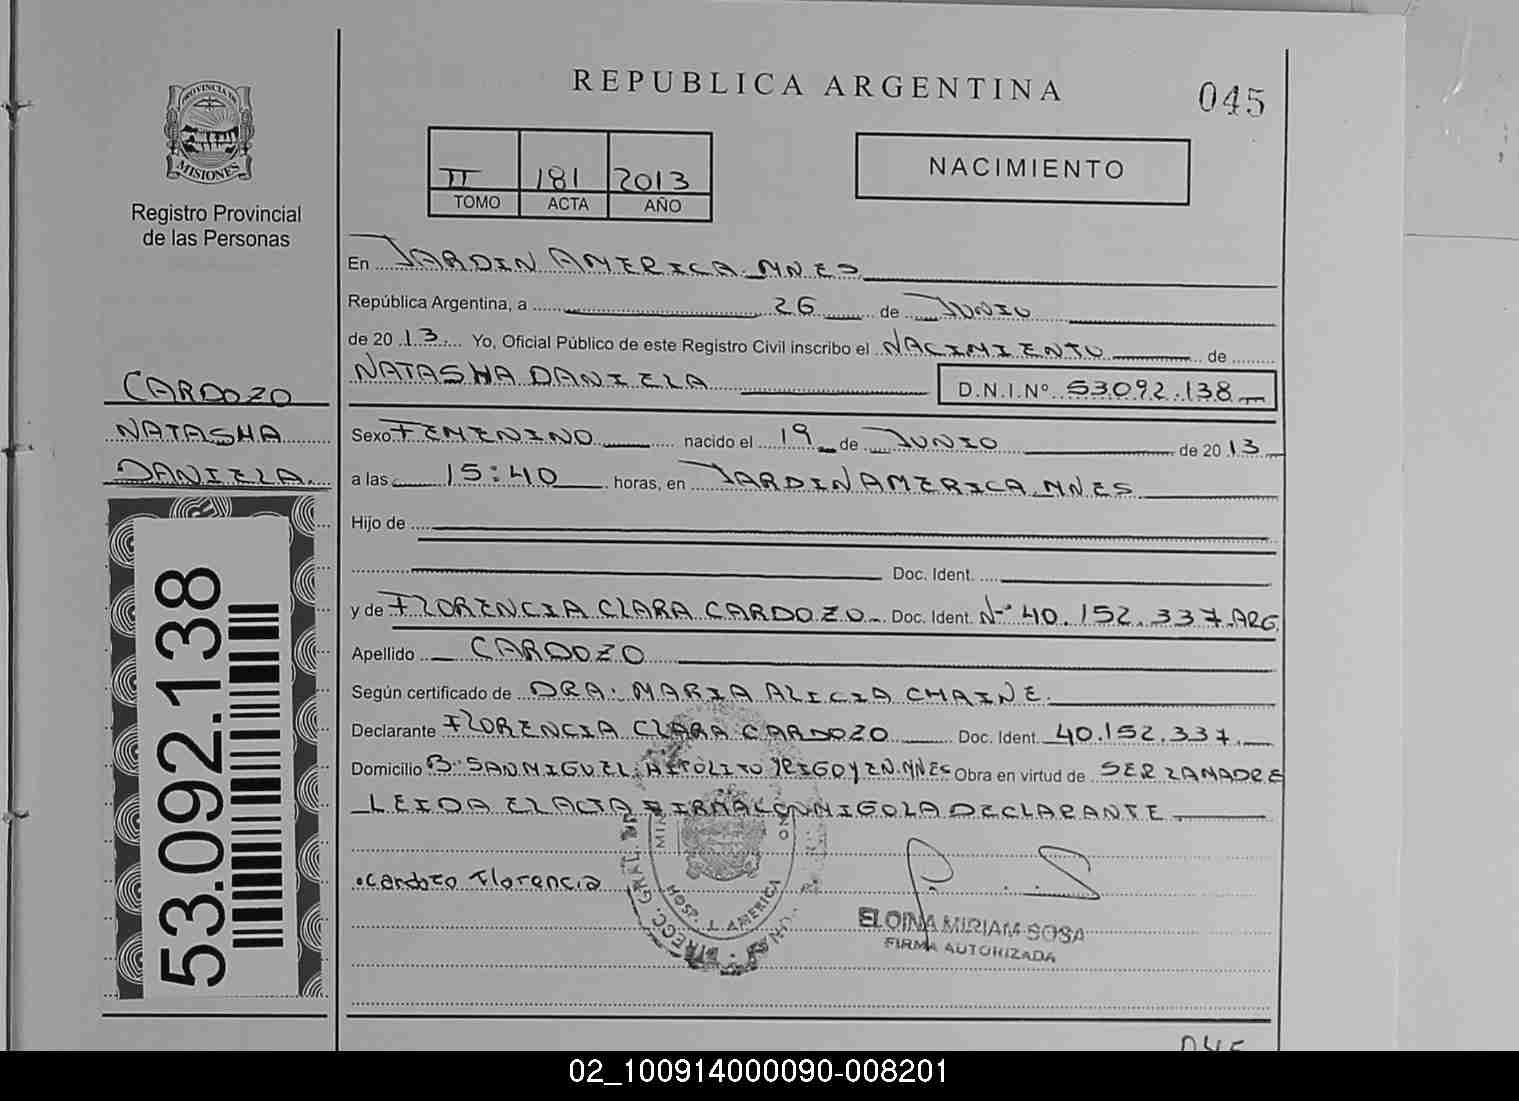 REPUBLICA ARGENTINA
045
PROVINCIA DE
MISIONES
Registro Provincial
de las Personas
II 181 2013
TOMO ACTA AÑO
NACIMIENTO
En JARDIN AMERICA. MNES
República Argentina, a 26 de JUNIO
de 2013 Yo, Oficial Público de este Registro Civil inscribo el NACIMIENTO de
NATASHA DANIELA
D.N.I.Nº 53.092.138
CARDOZO
NATASHA
DANIELA.
Sexo FEMENINO nacido el 19 de JUNIO de 2013
a las 15:40 horas, en JARDIN AMERICA. MNES
Hijo de
Doc. Ident.
y de FLORENCIA CLARA CARDOZO Doc. Ident. Nº 40.152.337. ARG
Apellido CARDOZO
Según certificado de DRA: MARIA ALICIA CHAINE.
Declarante FLORENCIA CLARA CARDOZO Doc. Ident. 40.152.337.
Domicilio Bº SAN MIGUEL, HIPOLITO YRIGOYEN. MNES Obra en virtud de SER LA MADRE
LEIDA EL ACTA FIRMA CONMIGO LA DECLARANTE
Cardozo Florencia
HOSP. J. AMERICA
ELOINA MIRIAM SOSA
FIRMA AUTORIZADA
53.092.138
045
02_100914000090-008201